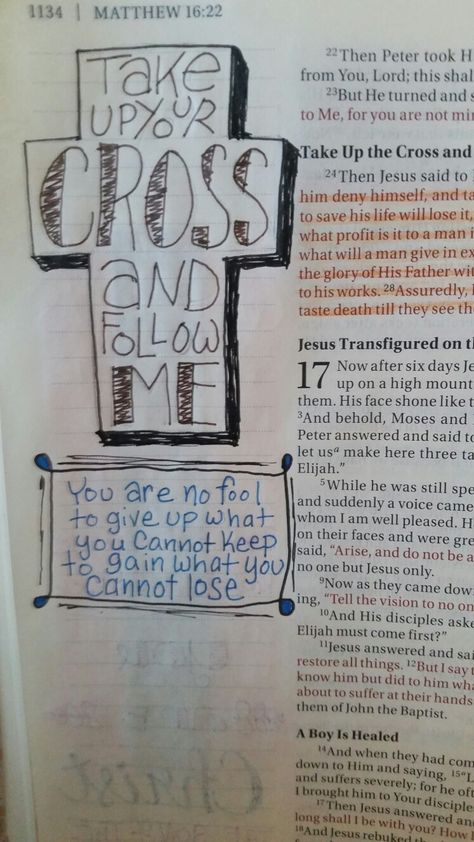 1134 | MATTHEW 16:22
TAKE
UP YOUR
CROSS
AND
FOLLOW
ME
You are no fool
to give up what
you cannot keep
to gain what you
cannot lose
Christ
22Then Peter took H
from You, Lord; this shal
23But He turned and s
to Me, for you are not mi
Take Up the Cross and
24Then Jesus said to
him deny himself, and ta
to save his life will lose it,
what profit is it to a man i
what will a man give in ex
the glory of His Father wit
to his works. 28Assuredly, I
taste death till they see th
Jesus Transfigured on th
17 Now after six days Je
up on a high mount
them. His face shone like t
3And behold, Moses and
Peter answered and said to
let usa make here three ta
Elijah.”
5While he was still spe
and suddenly a voice came
whom I am well pleased. H
on their faces and were gre
said, “Arise, and do not be a
no one but Jesus only.
9Now as they came dow
ing, “Tell the vision to no on
10And His disciples aske
Elijah must come first?”
11Jesus answered and sai
restore all things. 12But I say t
know him but did to him wha
about to suffer at their hands
them of John the Baptist.
A Boy Is Healed
14And when they had com
down to Him and saying, 15“L
and suffers severely; for he oft
I brought him to Your disciple
17Then Jesus answered and
long shall I be with you? How l
18And Jesus rebuked th